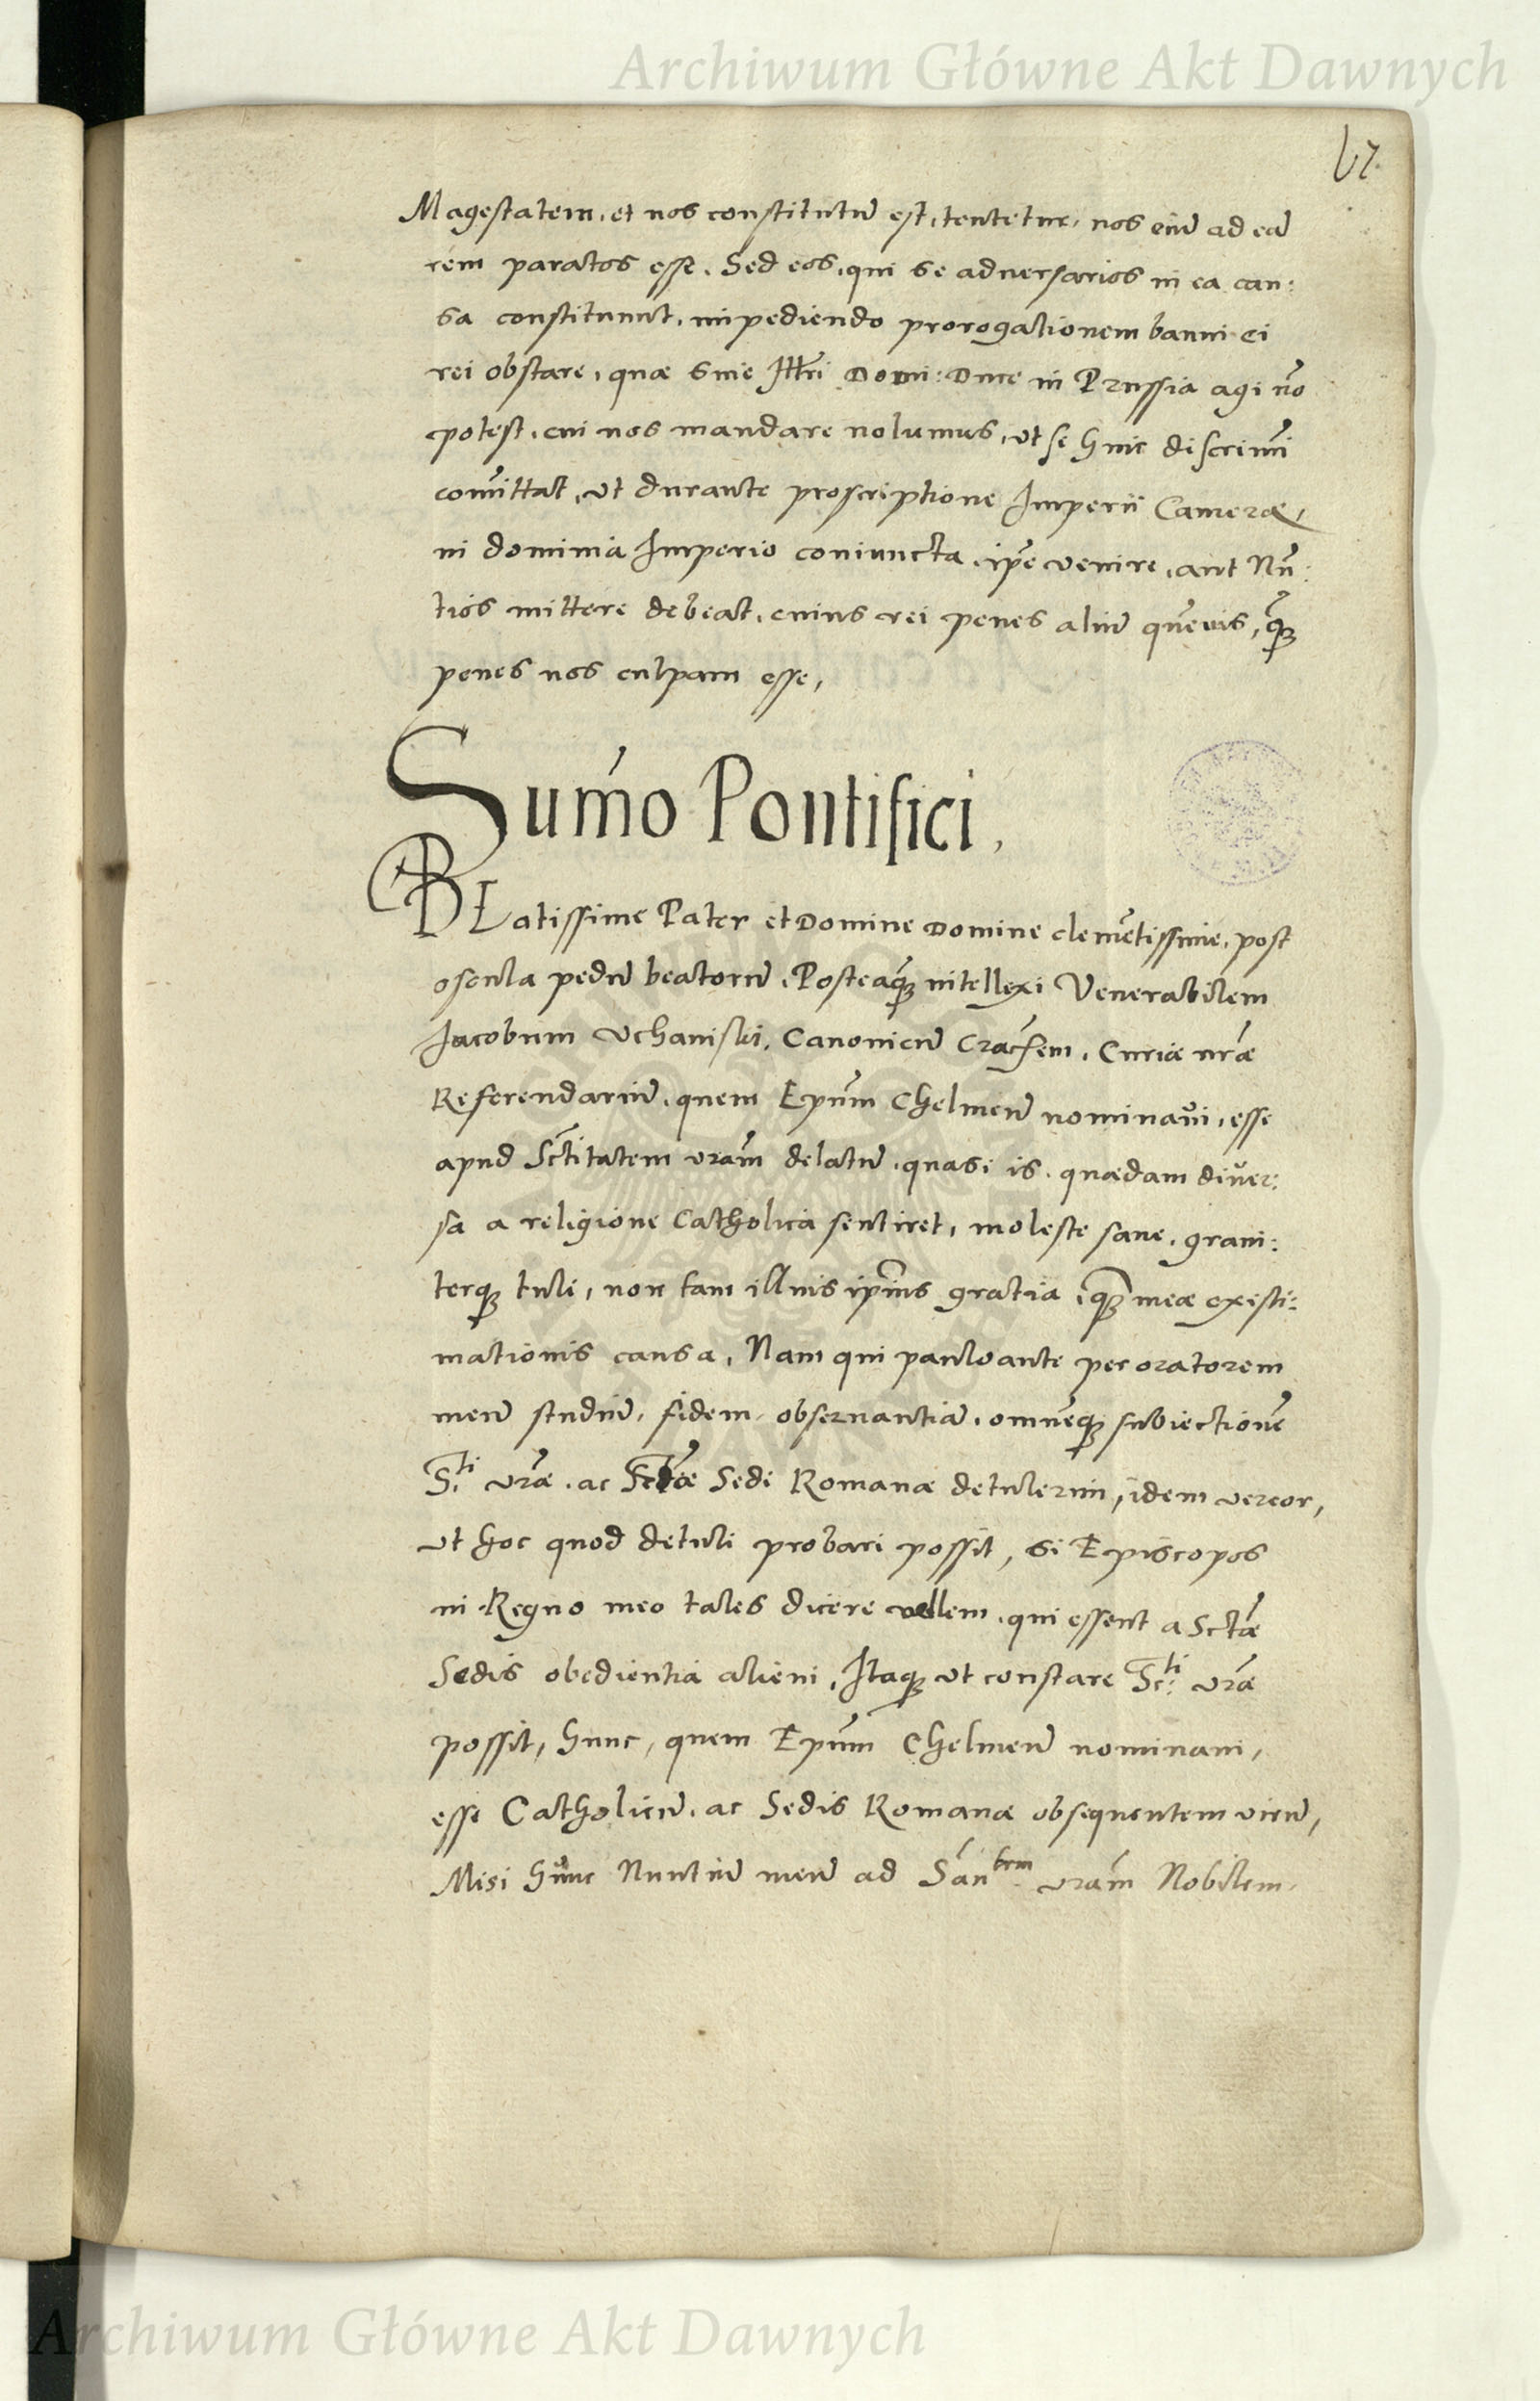 Archiwum Główne Akt Dawnych
67.
Magestatem, et nos constitutū est, tentetur, nos enī ad eā
rem paratos esse. Sed eos, qui se adversarios in ea cau:
sa constituunt, impediendo prorogationem banni ei
rei obstare, quae sine Illri Domi: Duce in Prussia agi nō
potest, cui nos mandare nolumus, ut se huic discrimī
comīttat, ut durante proscriptione Imperii Camerae,
in dominia Imperio coniuncta, ipē venire, aut Nū:
tios mittere debeat, cuius rei penes aliū quēvis, quā
penes nos culpam esse,
Sum̄o Pontifici,
BEatissime Pater et Domine Domine clemētissime, post
oscula pedū beatorū. Posteaquā intellexi Venerabilem
Jacobum Uchański, Canonicū Cracēsem, Curiae nr̄ae
Referendariū, quem Epūm Chelmenē nominavi, esse
apud Sctītatem vrām delatū, quasi is quaedam diver:
sa a religione Catholica sentiret, moleste sane, gravi:
terq; tuli, non tam illius ipīus gratia, quā meae existi:
mationis causa, Nam qui pauloante per oratorem
meū studiū, fidem, observantiā, omnēq; subiectionē
S.ti vrāe, ac Sctāe Sedi Romanae detulerim, idem vereor,
ut hoc quod detuli probari possit, si Episcopos
in Regno meo tales dicere vellem, qui essent a Sctāe
Sedis obedientia alieni, Itaq; ut constare Sc:ti vrāe
possit, hunc, quem Epūm Chelmenē nominavi,
esse Catholicū, ac Sedis Romanae obsequentem virū,
Misi hunc Nuntiū meū ad Sān.tem vrām Nobilem
Archiwum Główne Akt Dawnych